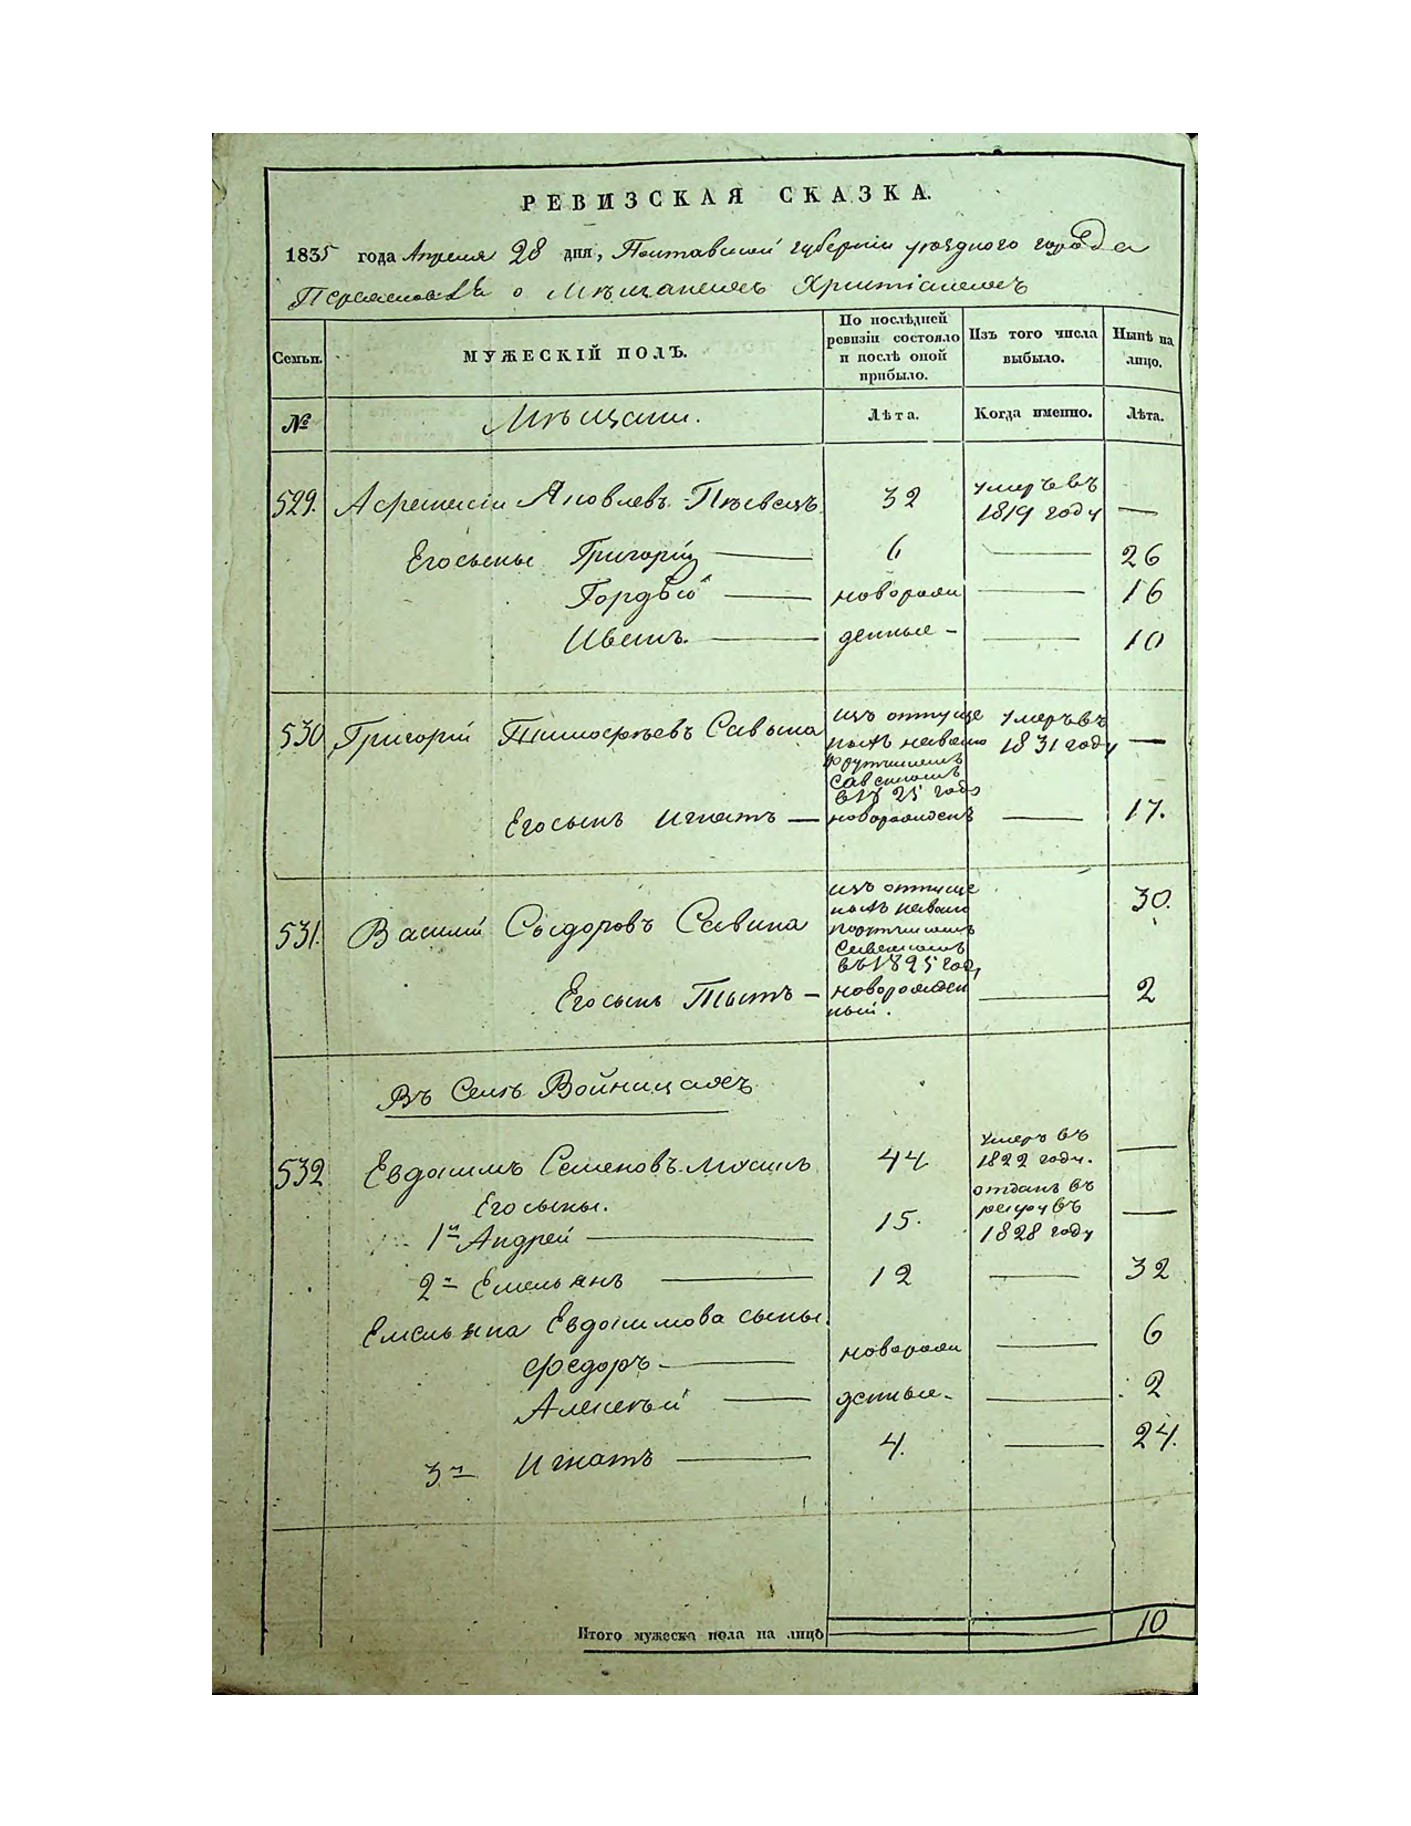 РЕВИЗСКАЯ СКАЗКА.
1835 года Апреля 28 дня, Полтавской губерніи уѣзднаго города
о Мѣщанахъ Христіанахъ
Семьи. МУЖЕСКІЙ ПОЛЪ. По послѣдней ревизіи состояло и послѣ оной прибыло. Изъ того числа выбыло. Нынѣ на лицо.
№ Мѣщани. Лѣта. Когда именно. Лѣта.
529. Яковлевъ Пѣвецъ 32 умеръ въ 1819 году —
Его сыны Григорій 6 — 26
Гордѣй новорож — 16
Иванъ. денные — 10
530 Григорій Тимофѣевъ Савина изъ отпуще умеръ въ 1831 году —
въ 1825 годо
Его сынъ Игнатъ новорожденъ — 17.
531. Василій Сыдоровъ Савина изъ отпуще 30.
въ 1825 год
Его сынъ Тытъ новорожден ный. — 2
Въ Селѣ Войницахъ
532 Евдокимъ Семеновъ 44 умеръ въ 1822 году. —
Его сыны.
1й Андрей 15. отданъ въ рекруты въ 1828 году —
2й Емельянъ 12 — 32
Емельяна Евдокимова сыны.
Федоръ новорож — 6
Алексѣй денные — 2
3й Игнатъ 4. — 24.
Итого мужеска пола на лицо 10